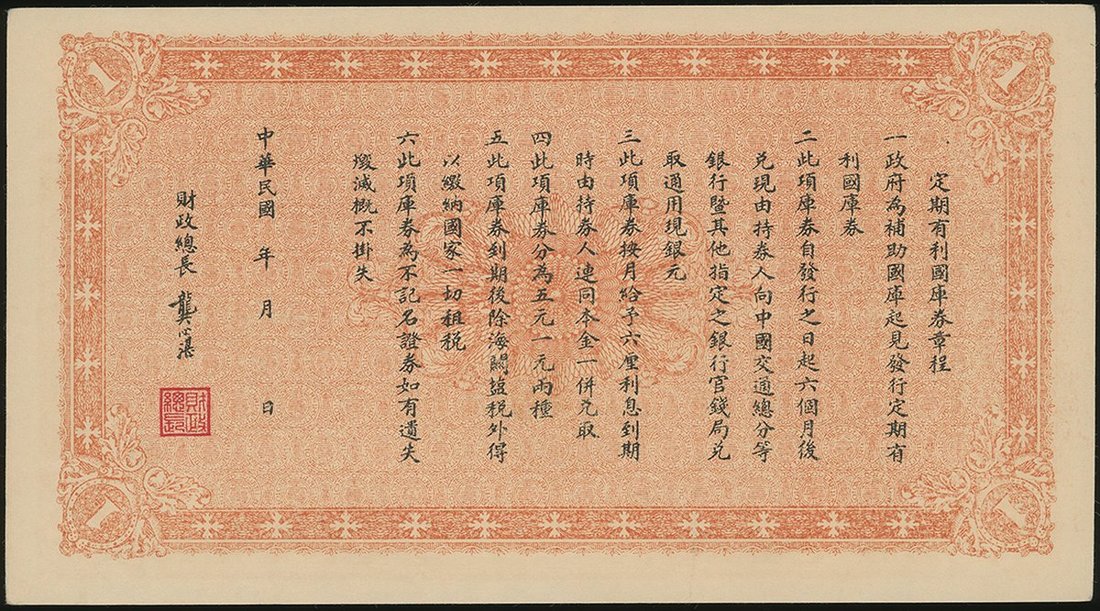 定期有利國庫券章程
一政府為補助國庫起見發行定期有
利國庫券
二此項庫券自發行之日起六個月後
兌現由持券人向中國交通總分等
銀行暨其他指定之銀行官錢局兌
取通用現銀元
三此項庫券按月給予六厘利息到期
時由持券人連同本金一併兌取
四此項庫券分為五元一元兩種
五此項庫券到期後除海關鹽稅外得
以繳納國家一切租稅
六此項庫券為不記名證券如有遺失
燬滅概不掛失
中華民國 年 月 日
財政總長 龔心湛
財政總長
1
1
1
1